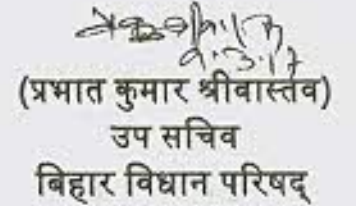 9.3.17
(प्रभात कुमार श्रीवास्तव)
उप सचिव
बिहार विधान परिषद्